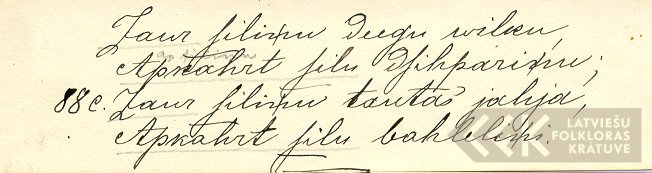 Zaur siliņu deegu wilku,
Apkahrt silu dsihpariņu;
88c. Zaur siliņu tautās jahja,
Apkahrt silu bahleliņi.
LATVIEŠU
FOLKLORAS
KRĀTUVE